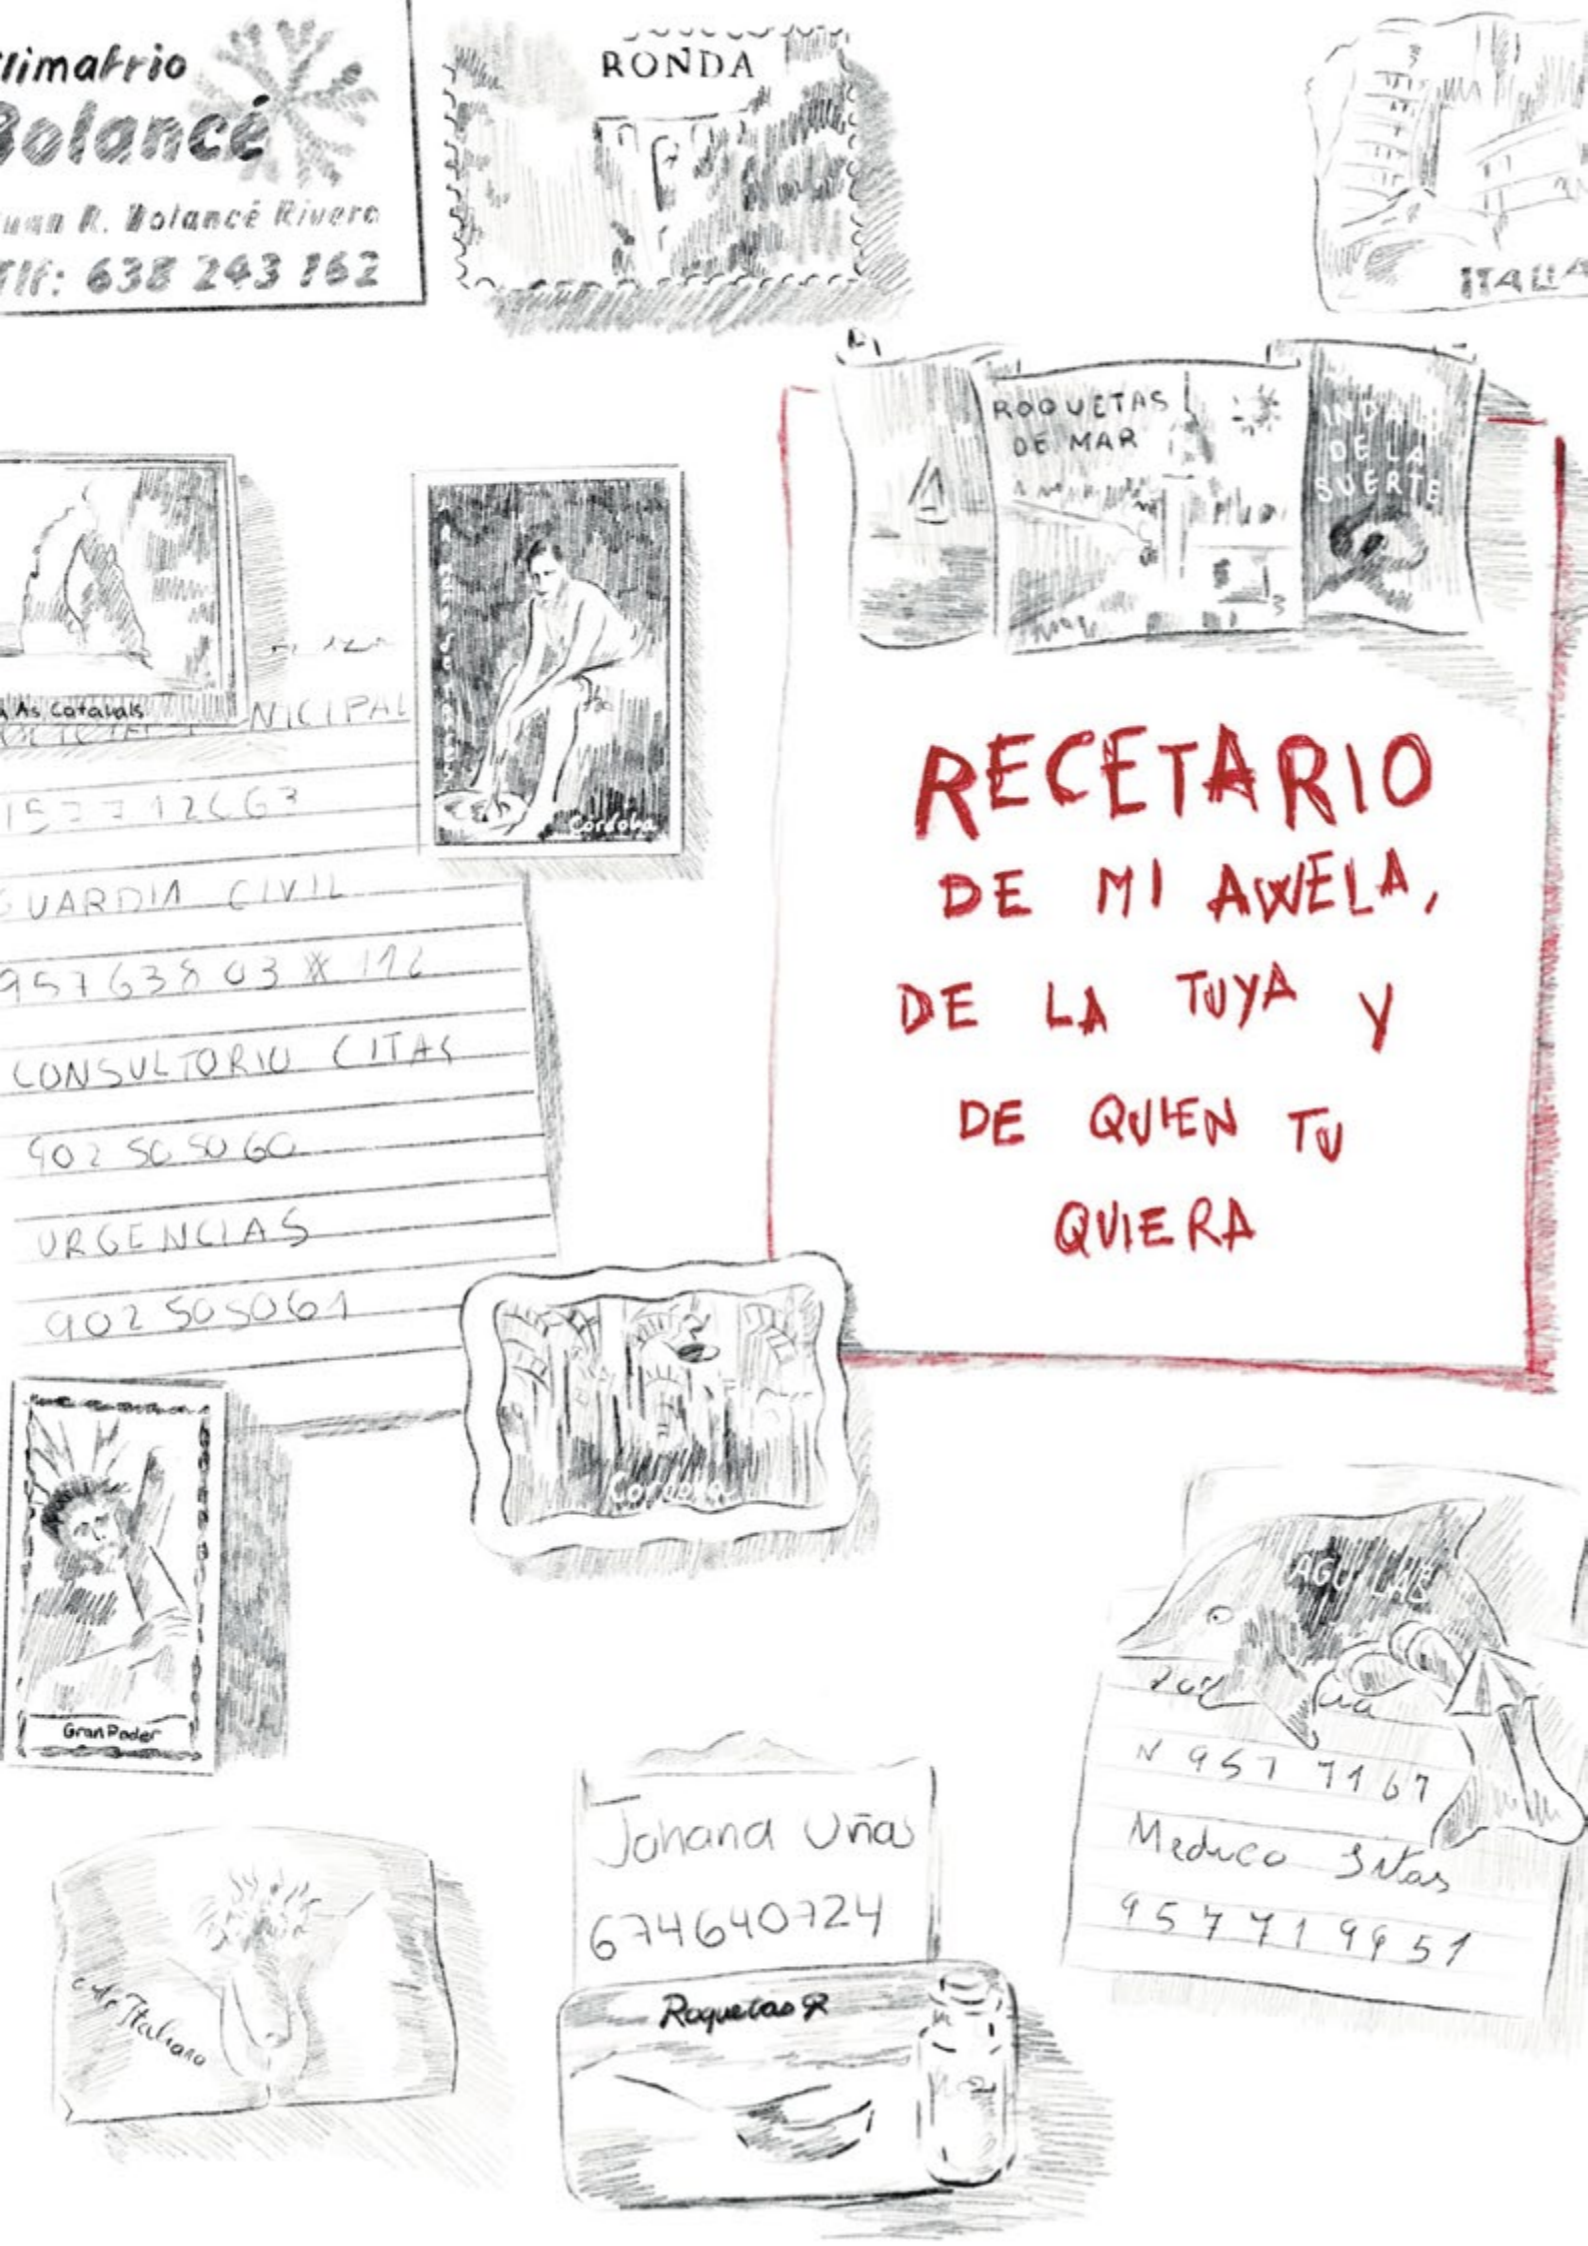 limafrio
Bolancé
uan R. Bolancé Rivera
Tlf: 638 243 162
RONDA
ITALIA
ROQUETAS
DE MAR
INDALO
DE LA
SUERTE
As Catedrals
NICIPAL
GUARDIA CIVIL
CONSULTORIO CITAS
902 50 50 60
URGENCIAS
902 505061
Cordoba
RECETARIO
DE MI AWELA,
DE LA TUYA Y
DE QUIEN TU
QUIERA
Cordoba
Gran Poder
AGUILAS
N 957 7167
Meduco Sitas
957719951
Johana Uñas
674640724
Roquetas
Italiano